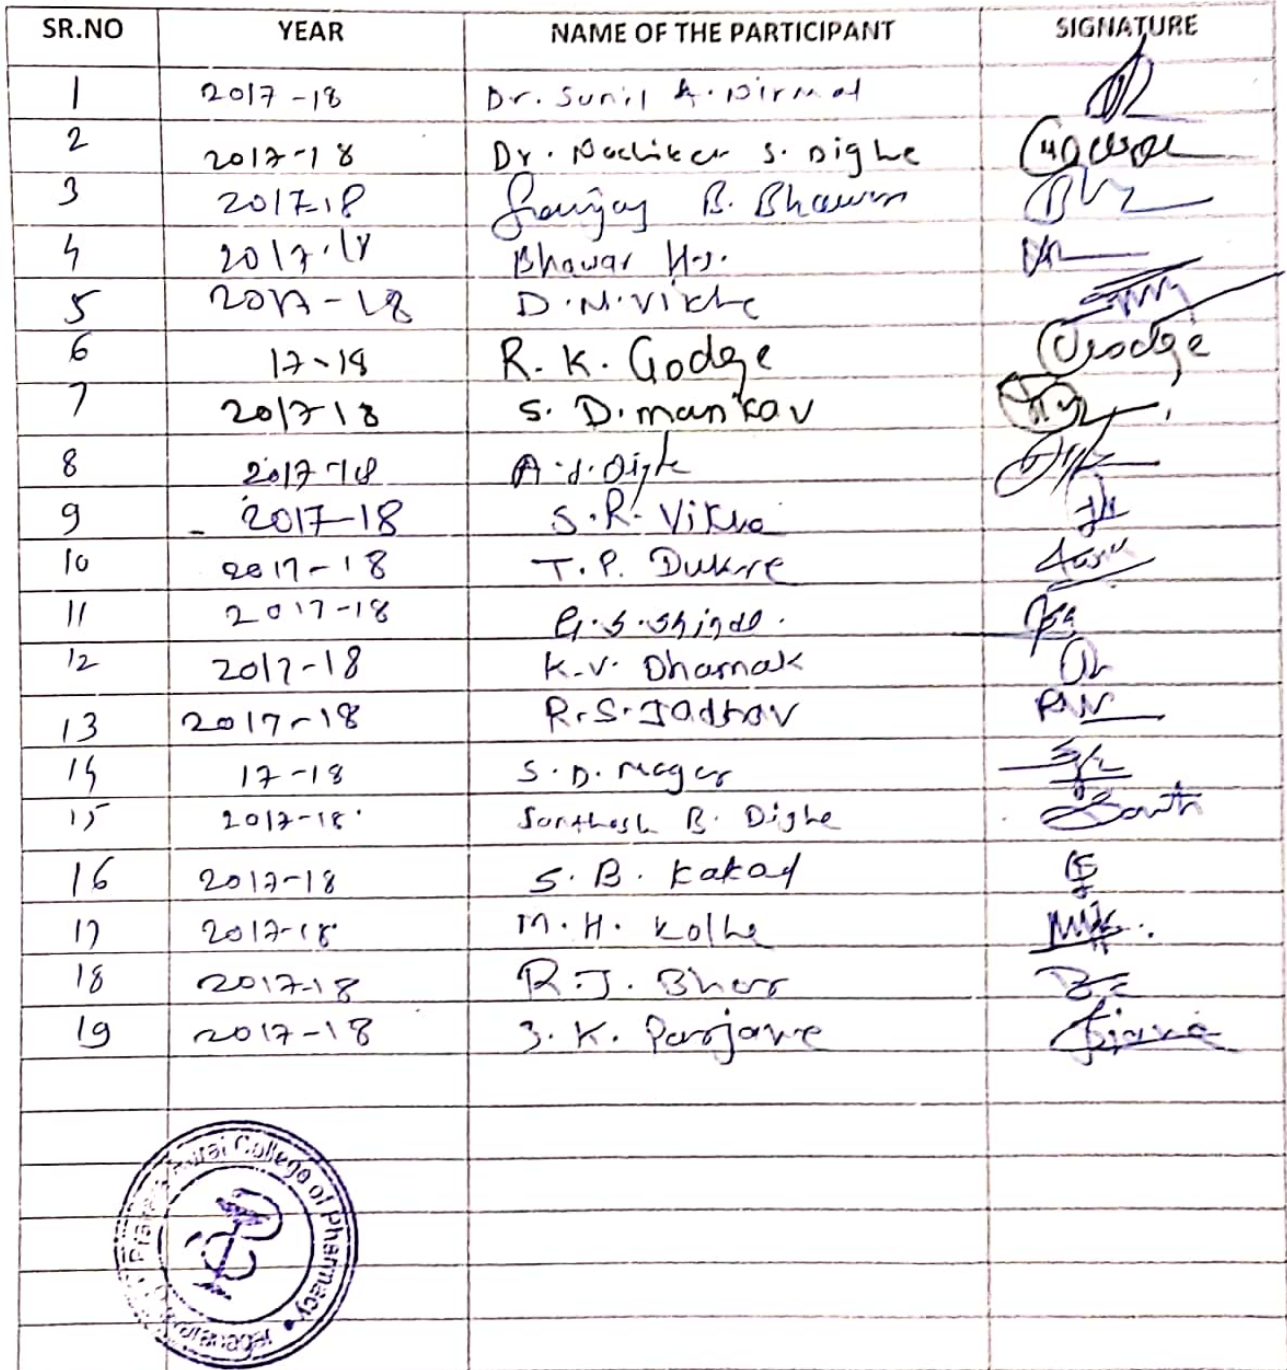 SR.NO YEAR NAME OF THE PARTICIPANT SIGNATURE
1 2017-18 Dr. Sunil A. Nirmal
2 2017-18 Dr. Nachiket S. Dighe
3 2017-18 Sanjay B. Bhawar
4 2017-18 Bhawar H.S.
5 2017-18 D.N.Vikhe
6 17-18 R. K. Godge Godge
7 2017-18 S. D. mankar
8 2017-18 A.S.Dighe
9 2017-18 S.R. Vikhe
10 2017-18 T.P. Dukre
11 2017-18 G.S.Shinde.
12 2017-18 K.V. Dhamak
13 2017-18 R.S.Jadhav
14 17-18 S.D. Magar
15 2017-18 Santhosh B. Dighe
16 2017-18 S. B. Kakad
17 2017-18 M. H. Kolhe
18 2017-18 R.J. Bhor
19 2017-18 S. K. Parjane
Rural College of Pharmacy